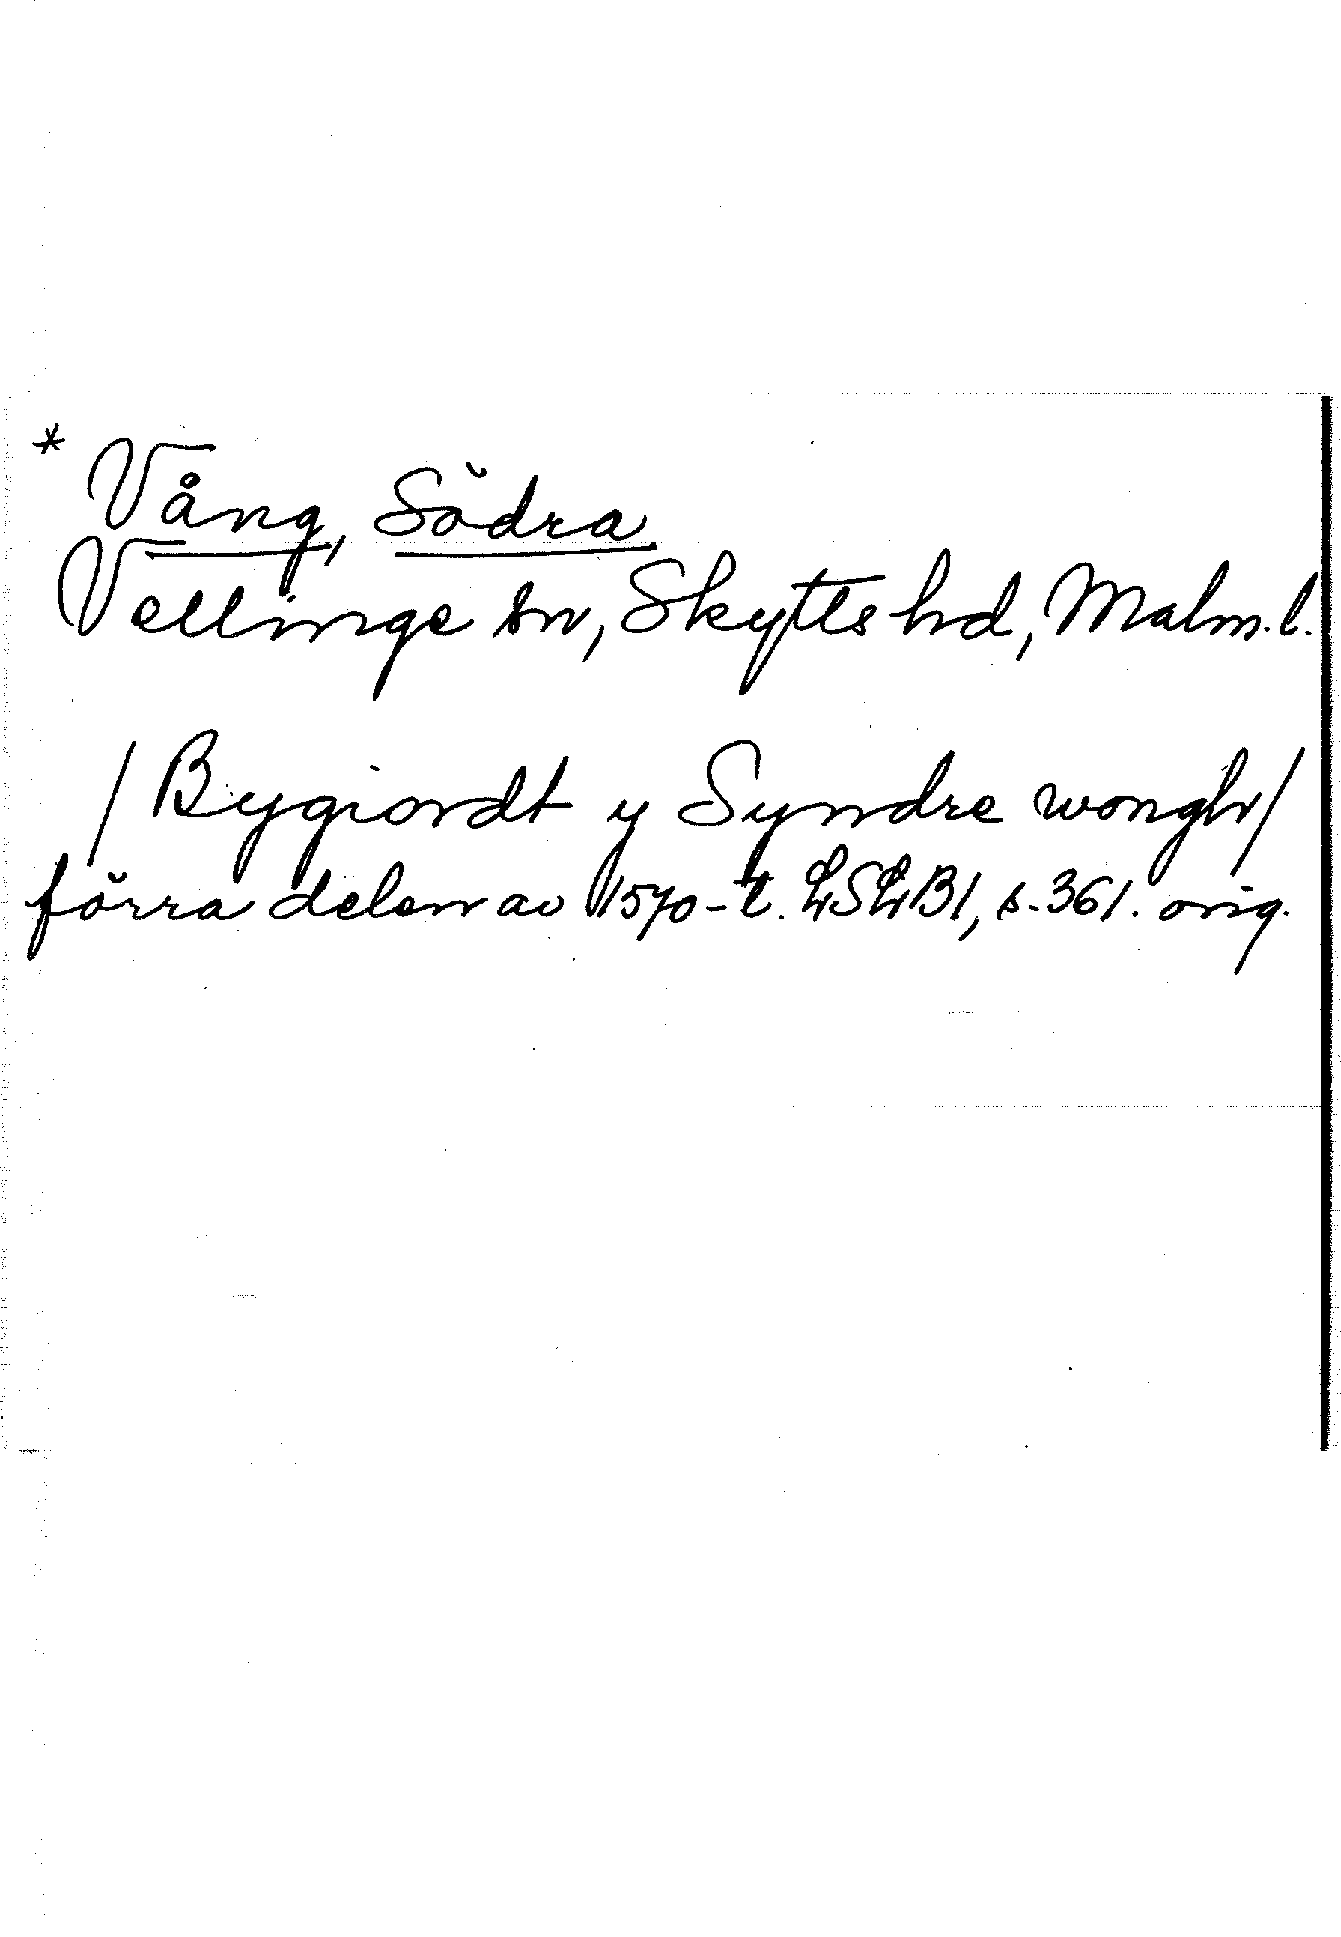 * Vång, Södra
Vellinge sn, Skytts hd, Malm. l.
/ Bygiordt y Syndre wongh /
förra delen av 1570-t. LSLB1, s. 361. orig.